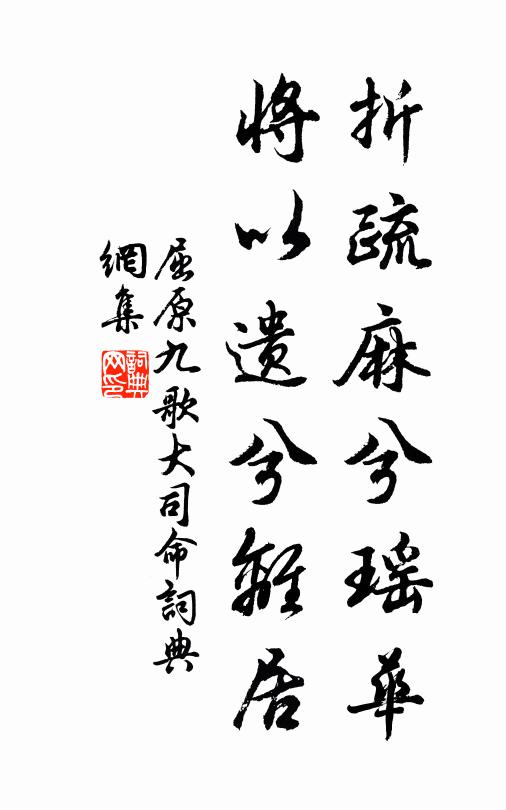 折疏麻兮瑶華
將以遺兮離居
屈原九歌大司命詞典
網集
詞典網印